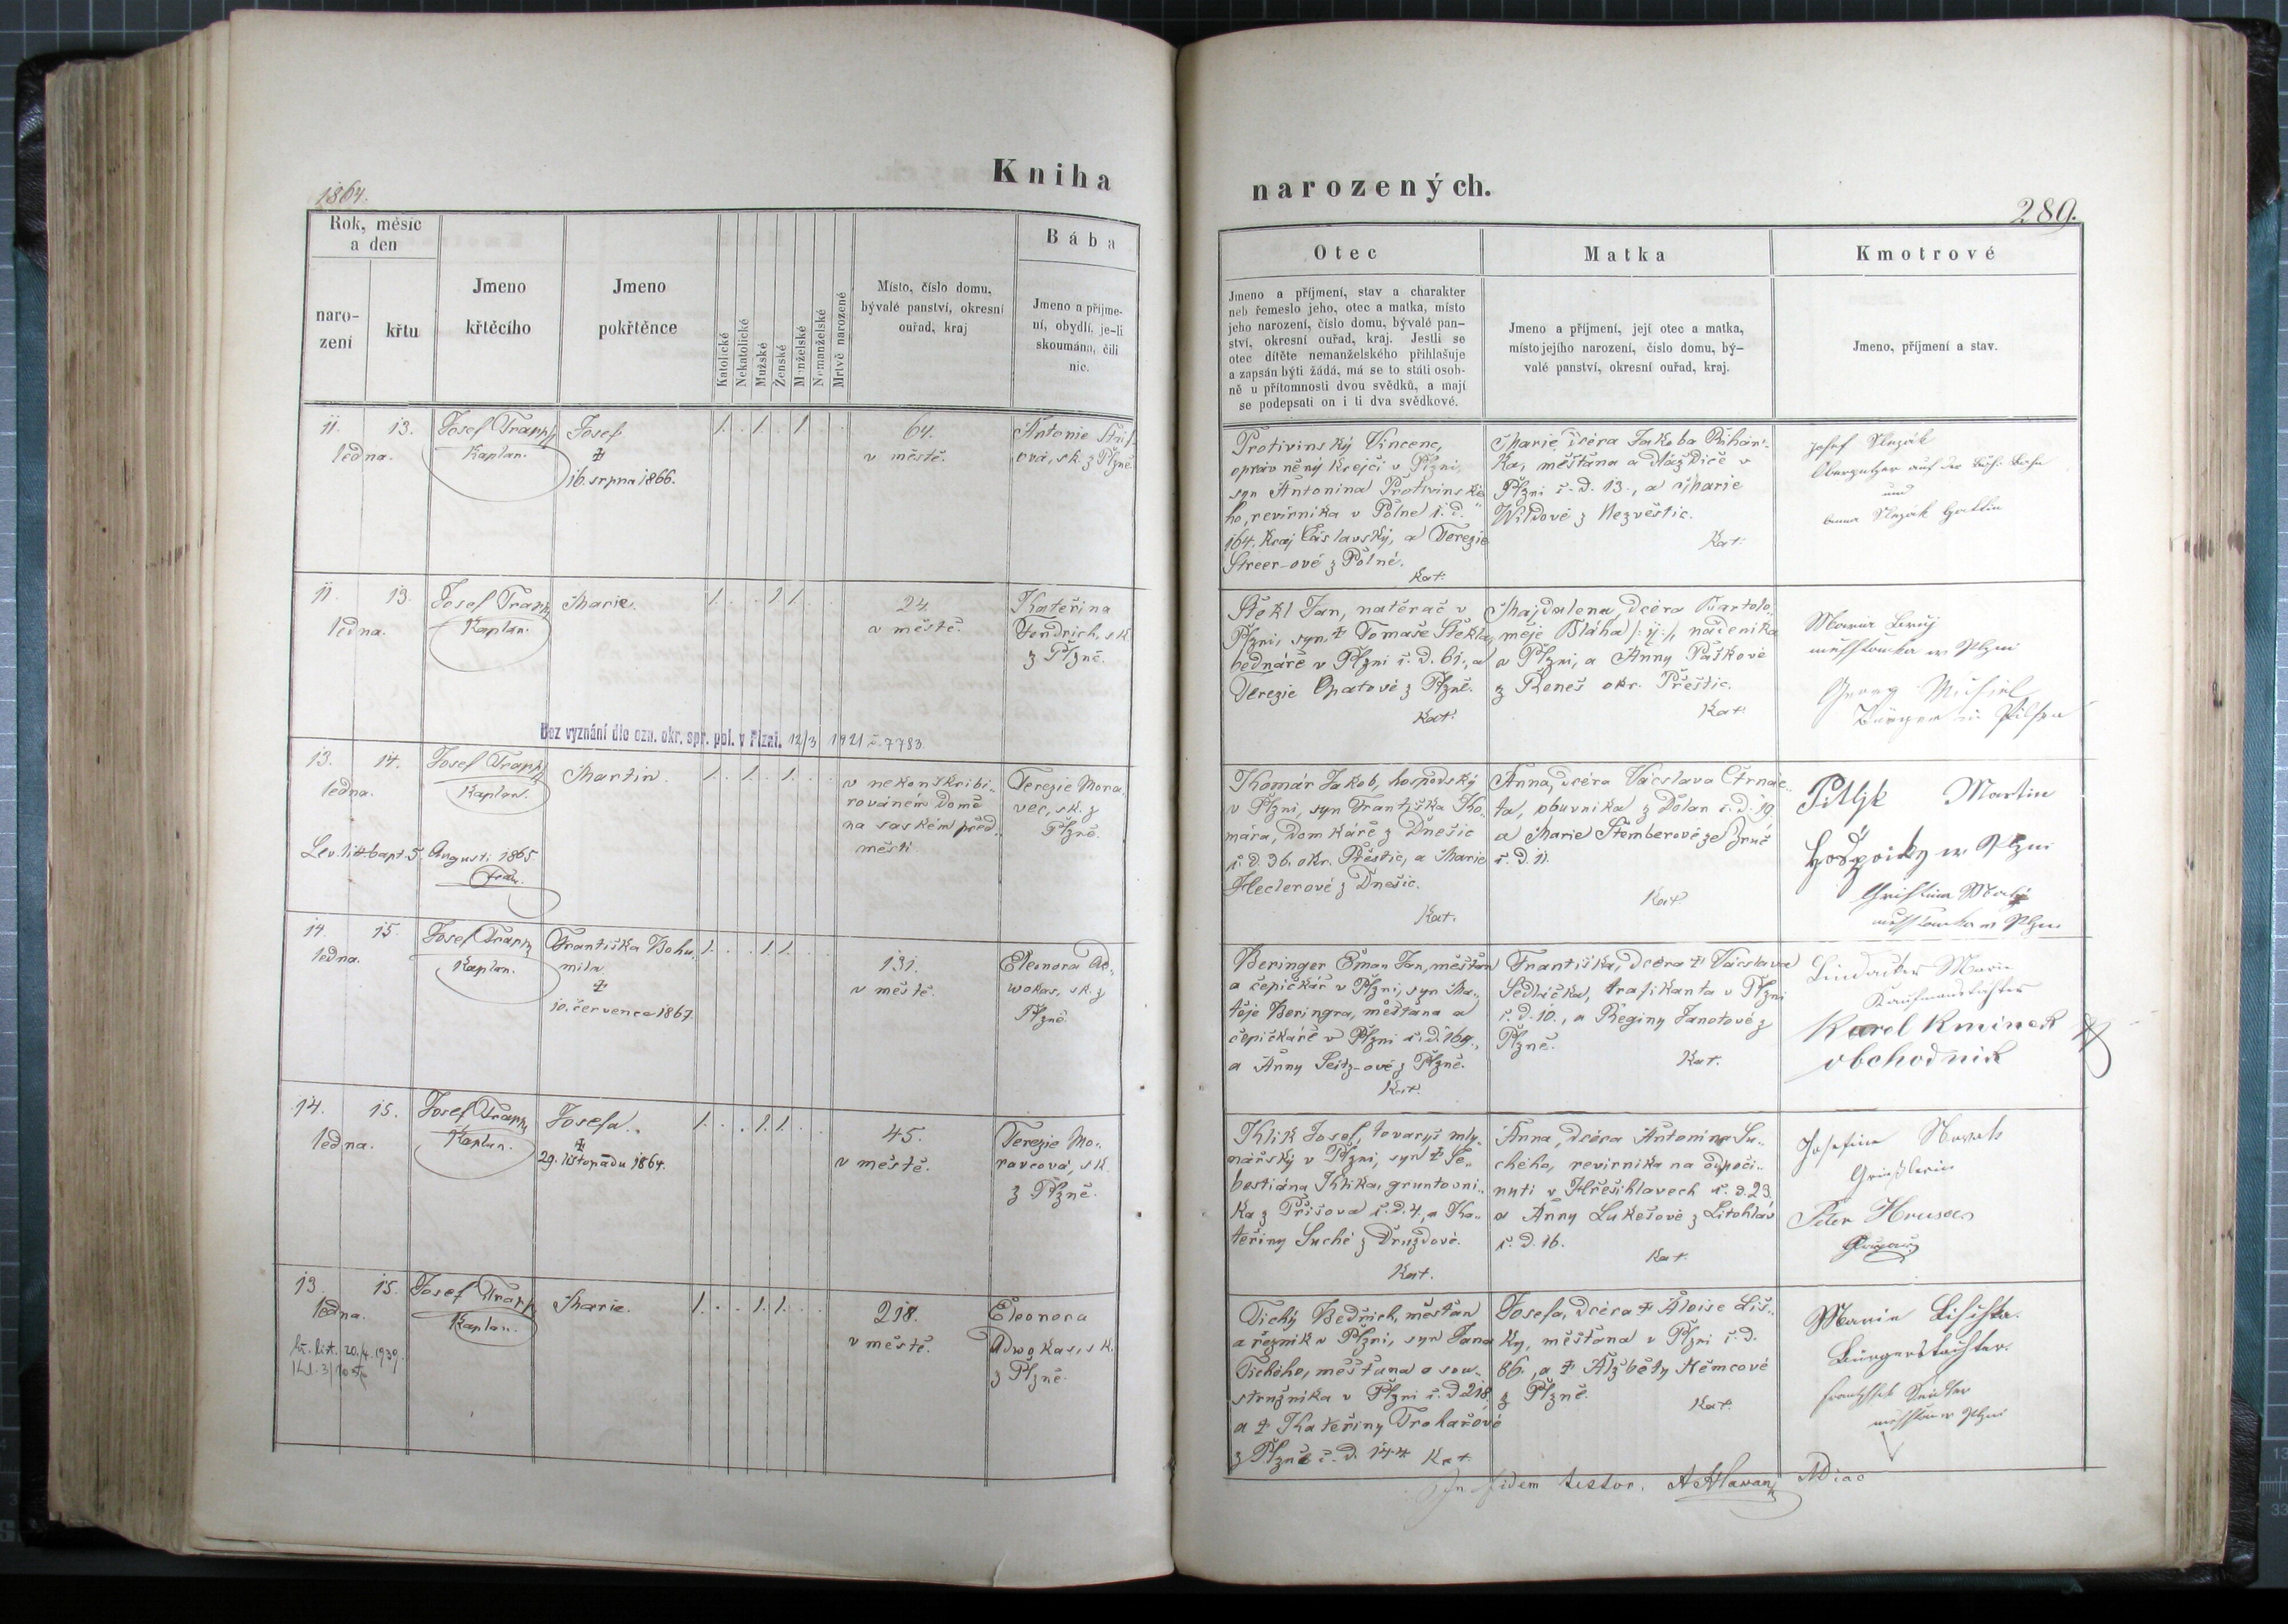 Kniha
1864.
Rok, měsíc
a den
naro-
zení
křtu
Jmeno
křtěcího
Jmeno
pokřtěnce
Katolické
Nekatolické
Mužské
Ženské
Manželské
Nemanželské
Mrtvě narozené
Místo, číslo domu,
bývalé panství, okresní
ouřad, kraj
Bába
Jmeno a příjme-
ní, obydlí, je-li
skoumána, čili
nic.
11. 13.
ledna.
Josef Trapp
Kaplan.
Josef
16. srpna 1866.
1. 1. 1.
64.
v městě.
Antonie
ová, sk. z Plzně.
11. 13.
ledna.
Josef Trapp
Kaplan.
Marie.
1. 1. 1.
24.
v městě.
Kateřina
Fendrich, sk.
z Plzně.
Bez vyznání dle ozn. okr. spr. pol. v Plzni. 12/3 1921 č. 7783.
13. 14.
ledna.
Lev. litt. bapt. 5 Augusti 1865.
Josef Trapp
Kaplan.
Martin.
1. 1. 1.
v nekonskribi-
rováném domě
na saském před-
městí
Terezie Mora-
vec, sk. z
Plzně.
14. 15.
ledna.
Josef Trapp
Kaplan.
Františka Bohu-
mila
10. července 1867.
1. 1. 1.
131.
v městě.
Eleonora Ad-
wokas, sk. z
Plzně.
14. 15.
ledna.
Josef Trapp
Kaplan.
Josefa.
29. listopadu 1864.
1. 1. 1.
45.
v městě.
Terezie Mo-
ravcová, sk.
z Plzně.
13. 15.
ledna.
kř. list. 20./4. 1939.
Josef Trapp
Kaplan.
Marie.
1. 1. 1.
218.
v městě.
Eleonora
Adwokas, sk.
z Plzně.
narozených.
289.
Otec
Jmeno a příjmení, stav a charakter
neb řemeslo jeho, otec a matka, místo
jeho narození, číslo domu, bývalé pan-
ství, okresní ouřad, kraj. Jestli se
otec dítěte nemanželského přihlašuje
a zapsán býti žádá, má se to státi osob-
ně u přítomnosti dvou svědků, a mají
se podepsati on i ti dva svědkové.
Matka
Jmeno a příjmení, její otec a matka,
místo jejího narození, číslo domu, bý-
valé panství, okresní ouřad, kraj.
Kmotrové
Jmeno, příjmení a stav.
Protivinský Vincenc,
oprávněný krejčí v Plzni,
syn Antonína Protivinské-
ho, revírníka v Polné č. d.
164. kraj Čáslavský, a Terezie
Streer-ové z Polné.
Kat.
Marie dcéra Jakoba Řihán-
ka, měštána a dlaždiče v
Plzni č. d. 13., a Marie
Wildové z Nezvěstic.
Kat.
Josef Slezák
und
Anna Slezák Gattin
Štekl Jan, natěrač v
Plzni, syn † Tomaše Štekla,
bednáře v Plzni č. d. 61., a
Terezie Opatové z Plzně.
Kat.
Majdalena, dcéra Bartolo-
měje Bláha, nádeníka
v Plzni, a Anny Paškové
z Roneš okr. Přeštic.
Kat.
měšťanka w Plzni
Georg
Bürger in Pilsen
Komár Jakob, hospodský
v Plzni, syn Františka Ko-
mára, domkáře z Dnešic
č. d. 36. okr. Přeštic, a Marie
Heclerové z Dnešic.
Kat.
Anna, dcéra Václava Črnác-
ta, obuvníka z Dolan č. d. 19.
a Marie Štemberové ze Zruč
č. d. 11.
Kat.
Pitljk Martin
Hospocky w Plzni
Christina
měšťanka w Plzni
Beringer Eman Jan, měštán
a čepičkář v Plzni, syn Ma-
těje Beringra, měštána a
čepičkáře v Plzni č. d. 169.,
a Anny Seitz-ové z Plzně.
Kat.
Františka, dcéra † Václava
Sedláčka, trafikanta v Plzni
č. d. 10., a Reginy Janotové z
Plzně.
Kat.
Lindauer Marie
Kaufmannstochter
Karel Kminek
obchodník
Klik Josef, tovaryš mly-
nářský v Plzni, syn † Še-
bestiána Klika, gruntovní-
ka z Příšova č. d. 4., a Ka-
teřiny Suché z Druzdové.
Kat.
Anna, dcéra Antonína Su-
chého, revírníka na odpoči-
nutí v Hřešihlavech č. d. 23.
a Anny Lukešové z Litohlav
č. d. 16.
Kat.
Josefine Nowak
Greißlerin
Peter Hruska
Tichý Bedřich, měštán
a řezník v Plzni, syn Jana
Tichého, měštána a sou-
stružníka v Plzni č. d 218,
a † Kateřiny Troharóvé
z Plzně č. d. 144 Kat.
Josefa, dcéra † Aloise Liš-
ky, měštána v Plzni č. d.
86., a † Alžběty Němcové
z Plzně.
Kat.
Marie Lischka.
Bürgerstochter.
měšťan w Plzni
In fidem testor.